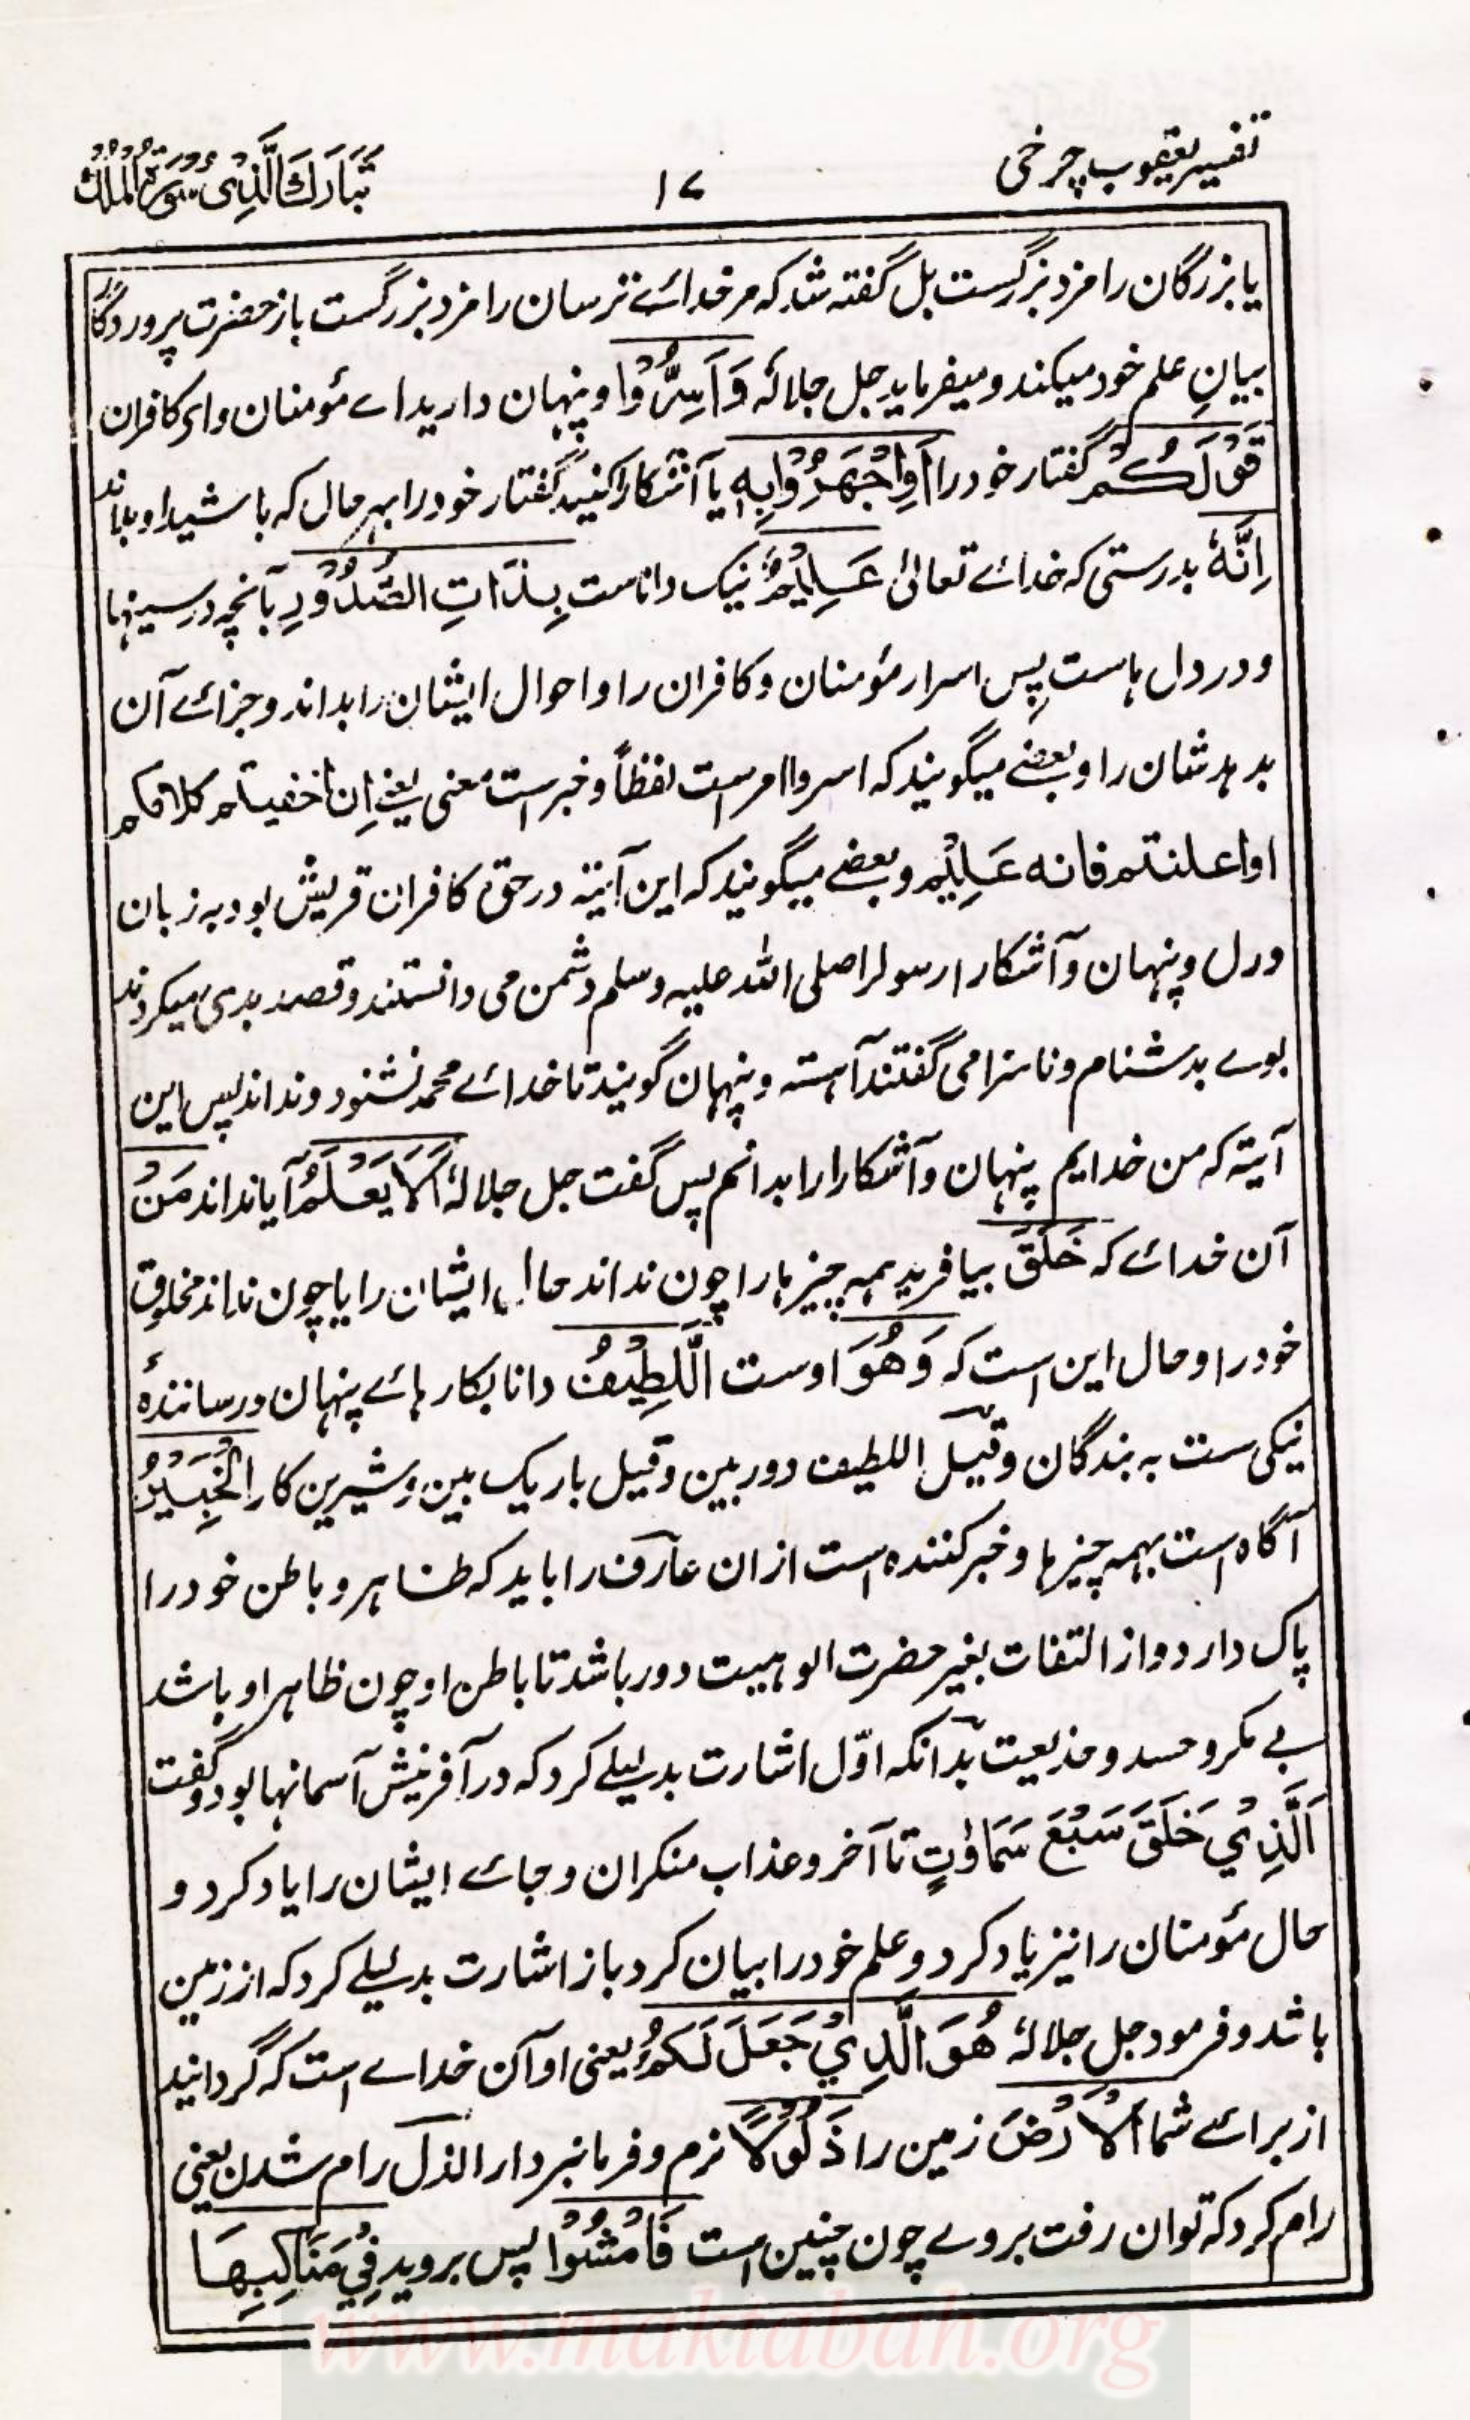 تفسیر یعقوب چرخی
۱۷
تَبَارَكَ الَّذِیْ سُوْرَةُ الْمُلْكُ
یا بزرگان را مزد بزرگست بل گفته شد که مر خدائے ترسان را مزد بزرگست باز حضرت پروردگار
بیانِ علم خود میکند و میفرماید جل جلالهٗ وَاَسِرُّوْا و پنهان دارید اے مؤمنان و ای کافران
قَوْلَكُمْ گفتار خود را اَوِاجْهَرُوْابِهٖ یا آشکارا کنید گفتار خود را بهر حال که باشید او بداند
اِنَّهٗ بدرستی که خدائے تعالیٰ عَلِیْمٌ نیک داناست بِذَاتِ الصُّدُوْرِ بآنچه در سینها
و در دل هاست پس اسرار مؤمنان و کافران را و احوال ایشان را بداند و جزائے آن
بدهد شان را و بعضے میگویند که اسروا امر است لفظاً و خبر است معنی یعنے اِن اخفیتم کلامکم
او اعلنتم فانه عَلِیْم و بعضے میگویند که این آیتہ در حق کافران قریش بود به زبان
و دل و پنهان و آشکارا رسول را صلی الله علیه وسلم دشمن می دانستند و قصد بدی میکردند
بوے بد شنام و ناسزا می گفتند آهسته و پنهان گویند تا خدائے محمد نشنود و نداند پس این
آیتہ که من خدایم پنهان و آشکارا را بدانم پس گفت جل جلالهٗ اَلَا یَعْلَمُ آیا نداند مَنْ
آن خدائے که خَلَقَ بیافرید همه چیزها را چون نداند حال ایشان را یا چون نداند مخلوق
خود را و حال این است که وَهُوَ اوست اللَّطِیْفُ دانا بکارهائے پنهان و رسانندهٔ
نیکی ست به بندگان و قیل اللطیف دوربین و قیل باریک بین و شیرین کار الْخَبِیْرُ
آگاه است بهمه چیزها و خبر کننده است ازان عارف را باید که ظاهر و باطن خود را
پاک دارد و از التفات بغیر حضرت الوهیت دور باشد تا باطن او چون ظاهر او باشد
بے مکر و حسد و خدیعت بدانکه اوّل اشارت بدلیلے کرد که در آفرینش آسمانها بود و گفت
اَلَّذِیْ خَلَقَ سَبْعَ سَمَاوٰتٍ تا آخر و عذاب منکران و جائے ایشان را یاد کرد و
حال مؤمنان را نیز یاد کرد و علم خود را بیان کرد باز اشارت بدلیلے کرد که از زمین
باشد و فرمود جل جلالهٗ هُوَ الَّذِیْ جَعَلَ لَكُمُ یعنی او آن خداے است که گردانید
از برائے شما اَلْاَرْضَ زمین را ذَلُوْلًا نرم و فرمانبردار الذل رام شدن یعنی
رام کرد که توان رفت بروے چون چنین است فَامْشُوْا پس بروید فِیْ مَنَاكِبِهَا
www.maktabah.org